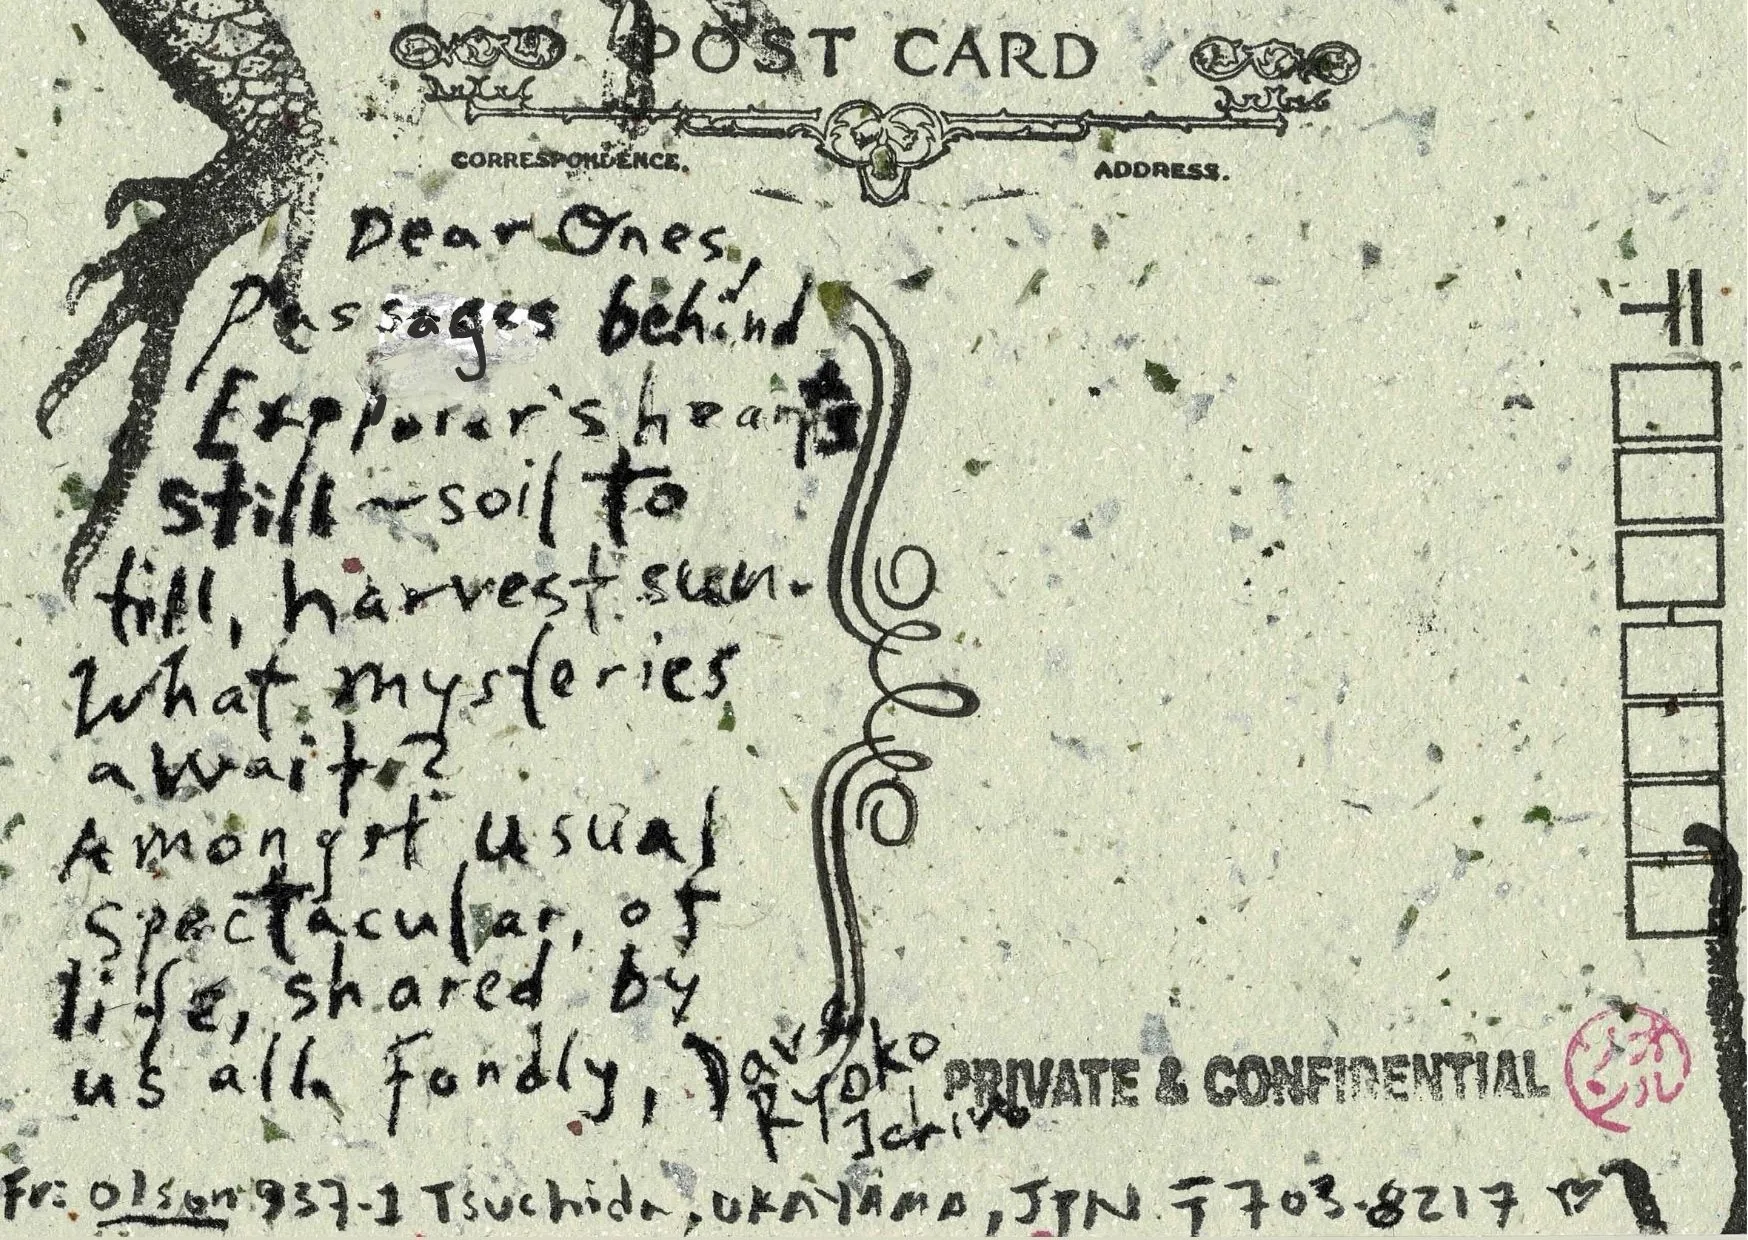 POST CARD
CORRESPONDENCE.
ADDRESS.
Dear Ones,
Passages behind
Explorer's hearts
still ~ soil to
till, harvest sun.
What mysteries
await?
Amongst usual
spectacular, of
life, shared by
us all. Fondly,
Kyoko
PRIVATE & CONFIDENTIAL
Fr: Olson 937-1 Tsuchida, OKAYAMA, JPN 〒703-8217